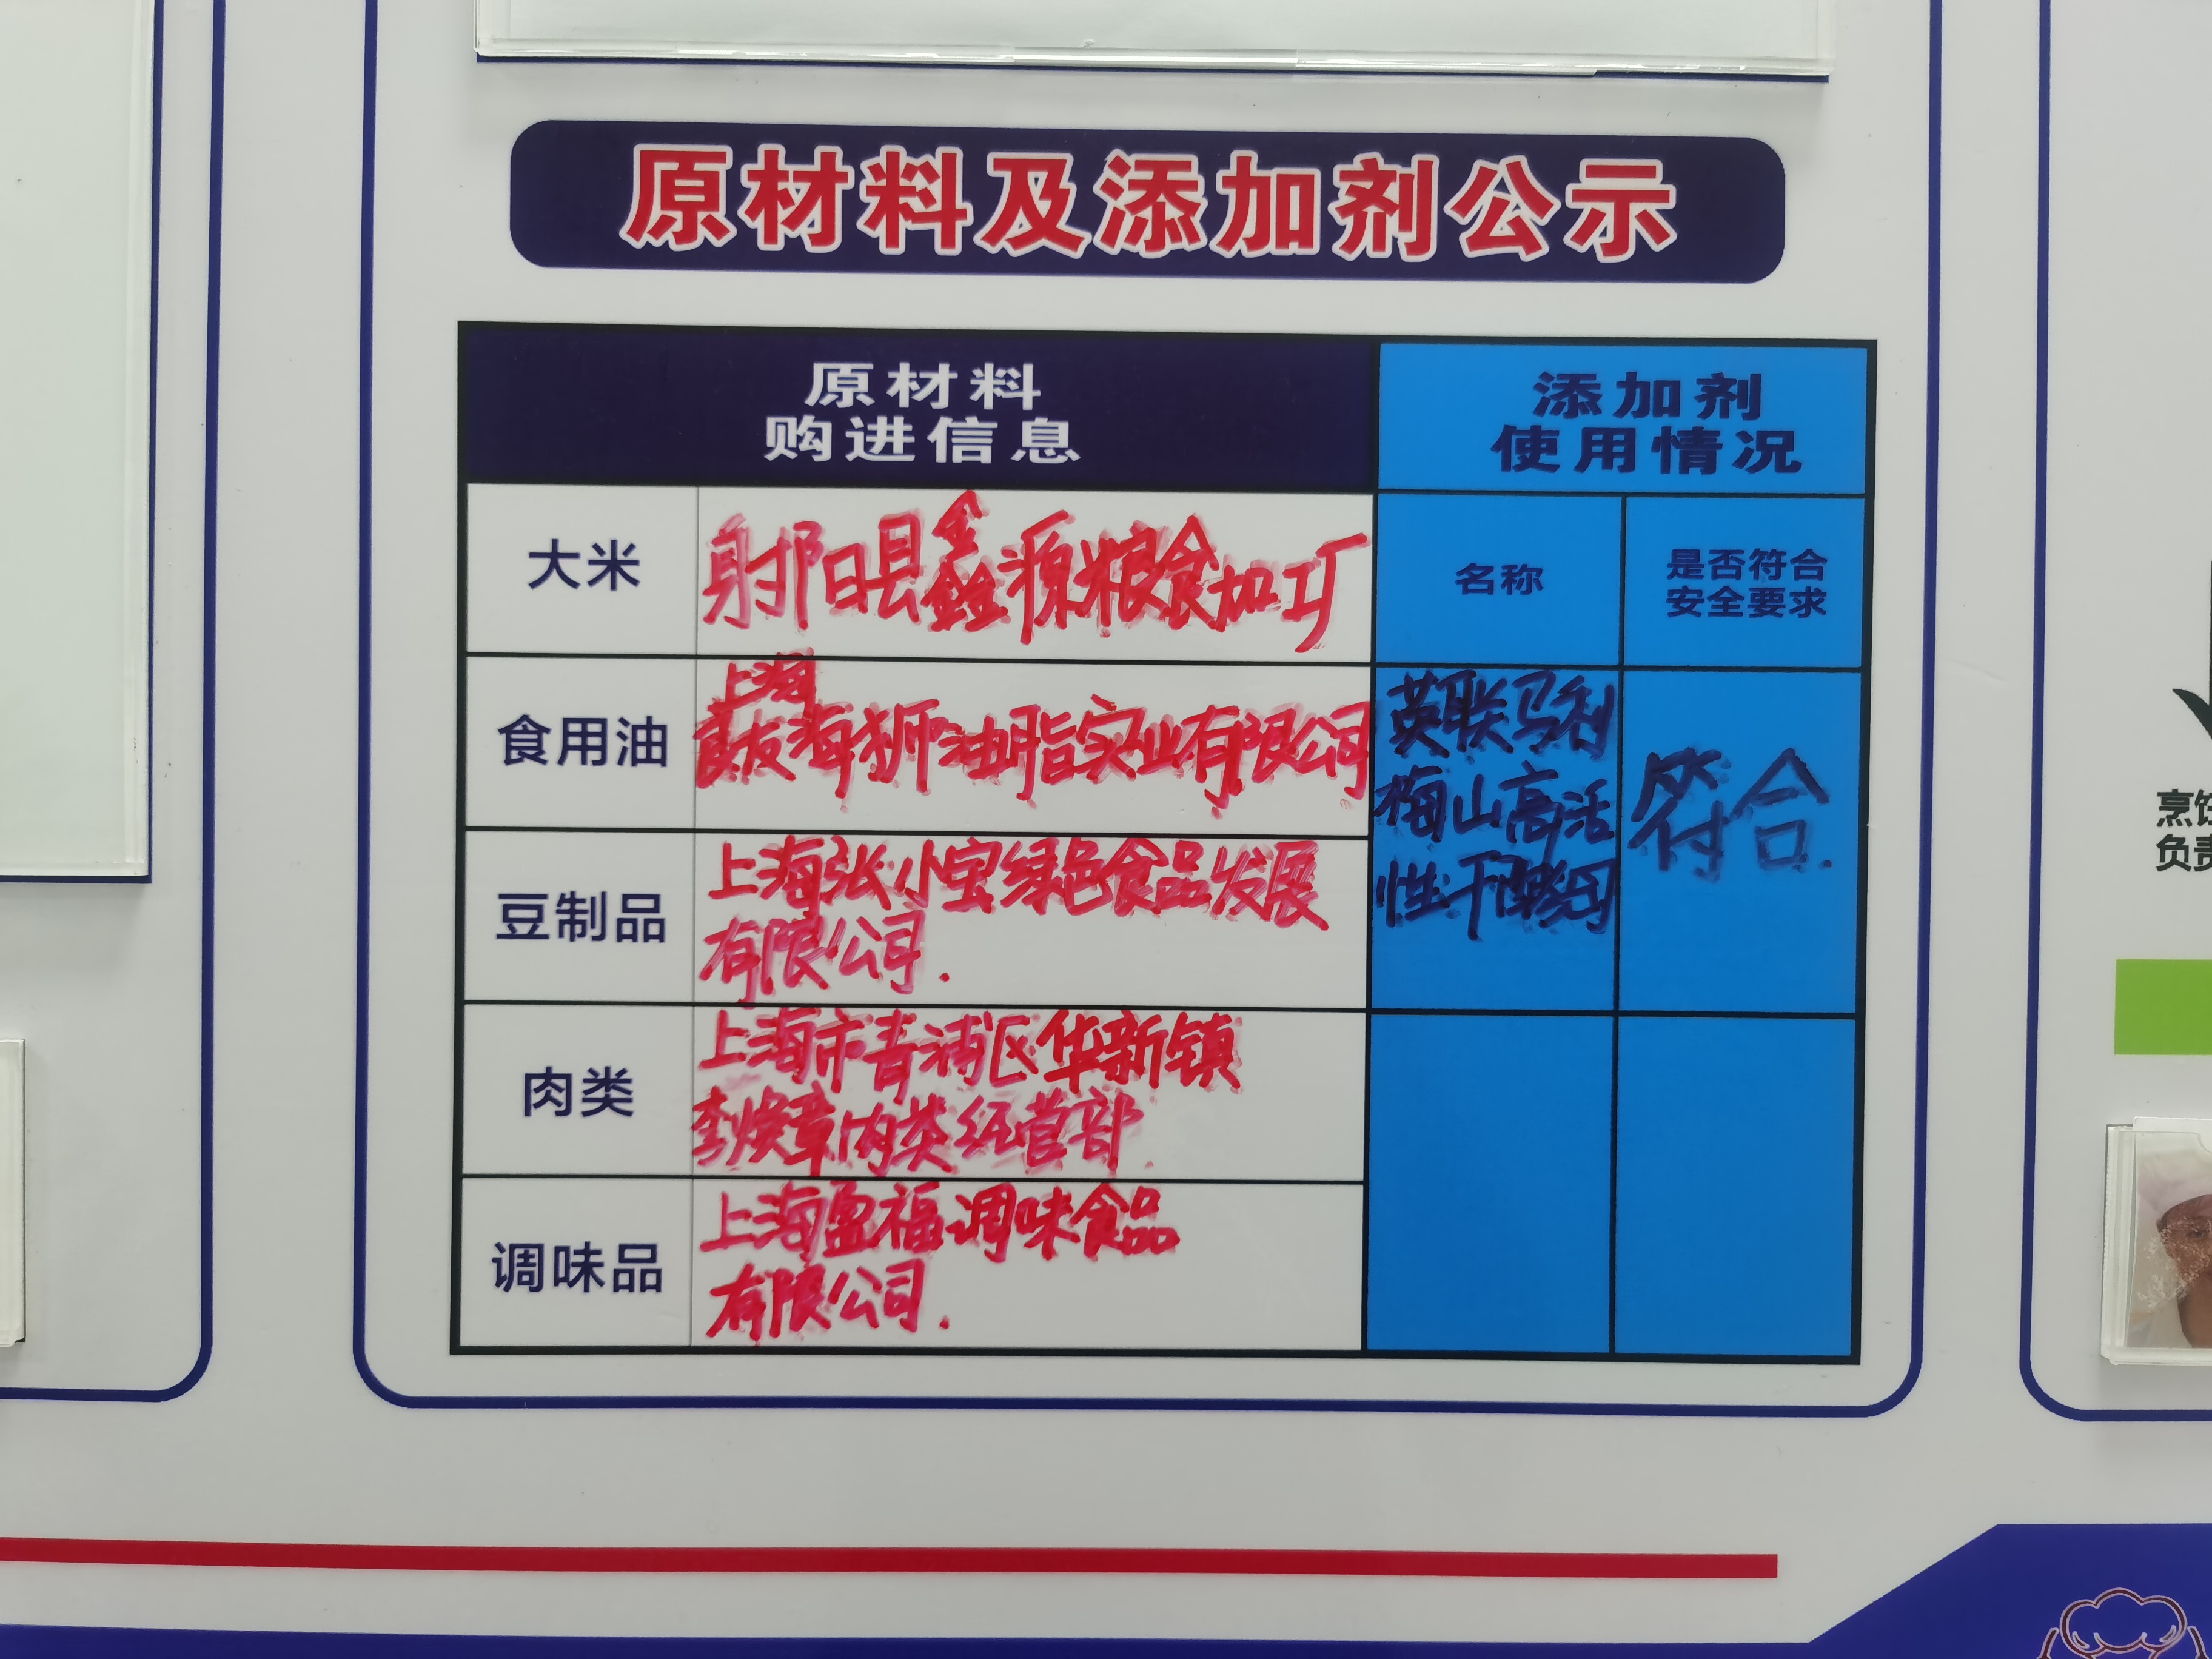 原材料及添加剂公示
原材料
购进信息
添加剂
使用情况
大米
射阳县鑫源粮食加工厂
名称
是否符合
安全要求
食用油
上海
良友海狮油脂实业有限公司
英联马利
梅山高活
性干酵母
符合.
豆制品
上海张小宝绿色食品发展
有限公司.
肉类
上海市青浦区华新镇
李焕章肉类经营部.
调味品
上海盈福调味食品
有限公司.
烹饪
负责